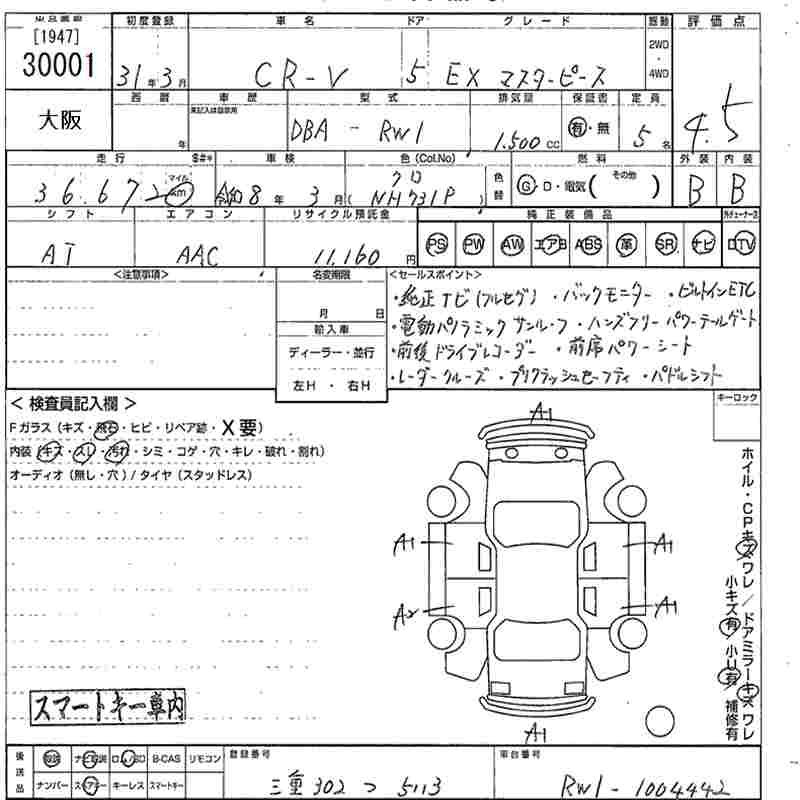 [1947]
30001
大阪
初度登録 車名 ドア グレード 駆動 評価点
31年3月 CR-V 5 EX マスターピース 2WD・4WD 4.5
西暦 車歴 型式 排気量 保証書 定員
年 未記入は自家用 DBA - RW1 1.500 cc 有・無 5名
走行 $#* 車検 色(Col.No) 色替 燃料 外装 内装
36.672 マイル km 令和8年 3月 クロ ( NH731P ) G・D・電気( その他 ) B B
シフト エアコン リサイクル預託金 純正装備品
AT AAC 11,160円 PS PW AW エアB ABS 革 SR ナビ TV
<注意事項> 名変期限 <セールスポイント>
月 日
輸入車
ディーラー・並行
左H・右H
・純正TV(フルセグ) ・バックモニター ・ビルトインETC
・電動パノラミックサンルーフ ・ハンズフリーパワーテールゲート
・前後ドライブレコーダー ・前席パワーシート
・レーダークルーズ ・プリクラッシュセーフティ ・パドルシフト
<検査員記入欄> キーロック
Fガラス(キズ・飛石・ヒビ・リペア跡・X要)
内装(キズ・スレ・汚れ・シミ・コゲ・穴・キレ・破れ・割れ)
オーディオ(無し・穴)/タイヤ(スタッドレス)
A1
A1 A1
A2 A1
A1
ホイル・CPキズワレ/ドアミラーキズワレ
小キズ有/小U有/補修有
スマートキー車内
後送品 取説 ナビ取説 ロム/SD B-CAS リモコン
ナンバー スペアキー キーレス スマートキー
登録番号 車台番号
三重 302 つ 5113 RW1-1004442